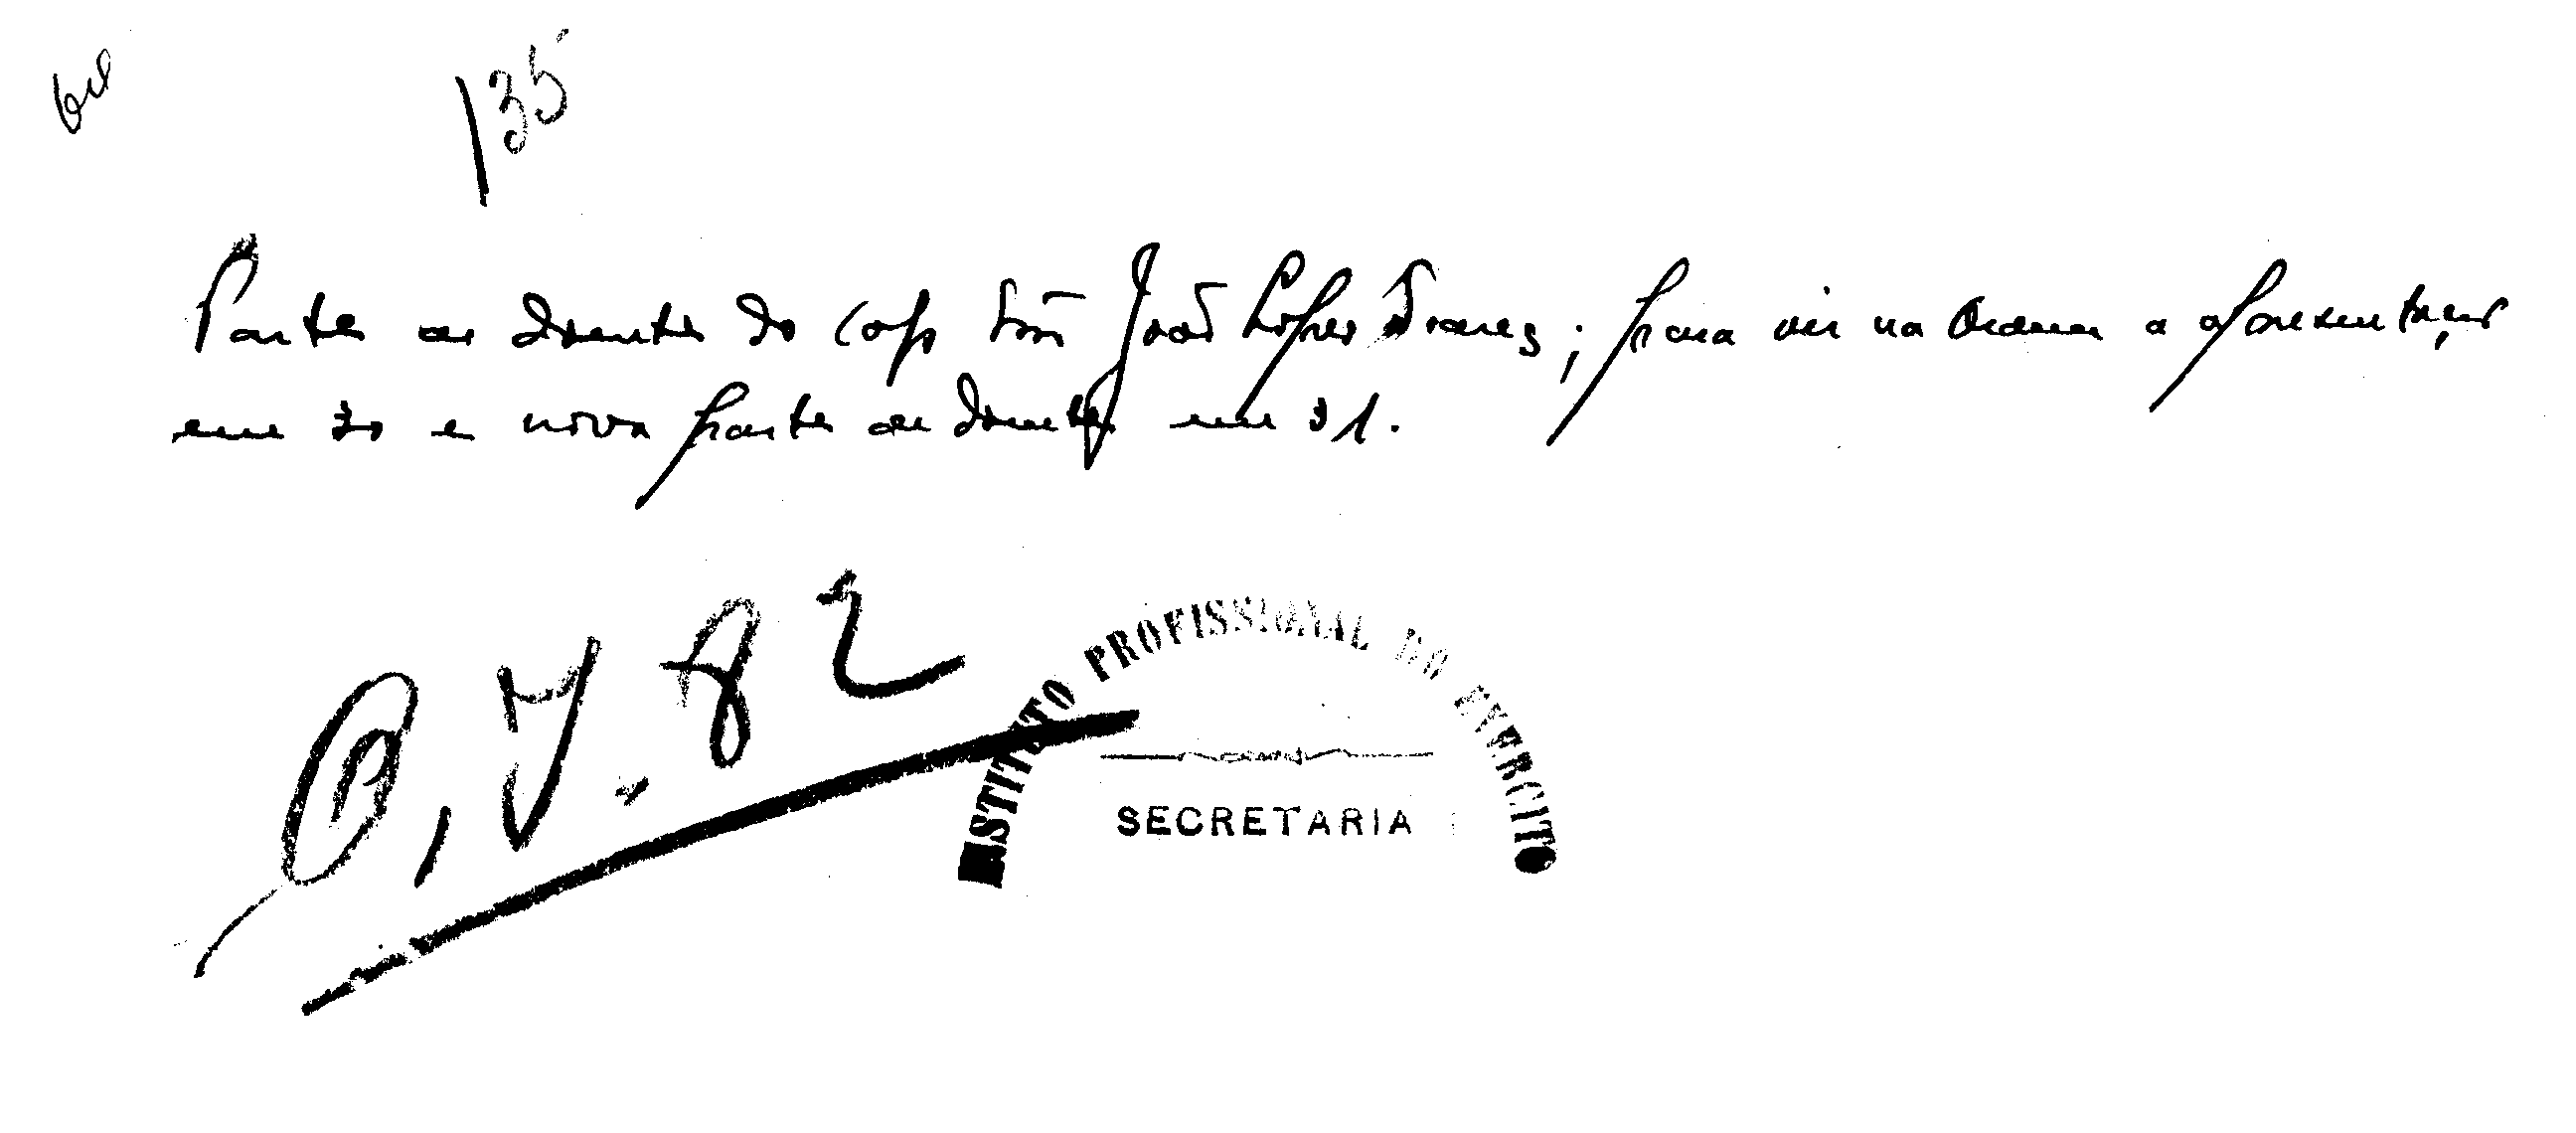 135
Parte de doente do Cap Ten João Lopes Soares; para vir na ordem a apresentação
em 30 e nova parte de doente em 31.
O, 82
INSTITUTO PROFISSIONAL DO EXERCITO
SECRETARIA